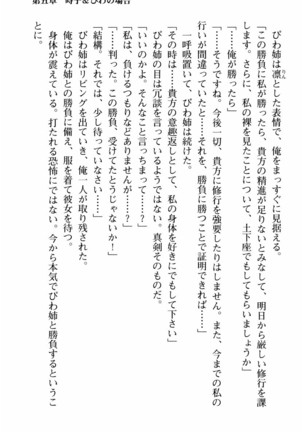 第五章　時子＆びわの場合
びわ姉は凛とした表情で、俺をまっすぐに見据える。
りん
「この勝負に私が勝ったら、貴方の精進が足りないとみなして、明日から厳しい修行を課
します。さらに、私の裸を見たことについて、土下座でもしてもらいましょうか」
「……俺が勝ったら」
「……そうですね。今後一切、貴方に修行を強要したりはしません。また、今までの私の
行いが間違っていたと――それを、勝負に勝つことで証明できれば……」
一呼吸置いて、びわ姉は続けた。
「その時は……貴方の意趣返しとして、私の身体を好きにでもして下さい」
びわ姉の目は冗談を言っているようではない。真剣そのものだ。
「いいのかよ。そんなこと言っちまって……？」
「私は、負けるつもりなどありませんが……？」
「……判った。この勝負、受けてたとうじゃないか！」
「結構。それでは、少し待っていなさい……」
びわ姉はリビングを出ていき、俺一人が取り残された。
俺はびわ姉との勝負に備え、服を着て彼女を待つ。
身体が震えている。打たれる恐怖にではない。今から本気でびわ姉と勝負するというこ
とに。